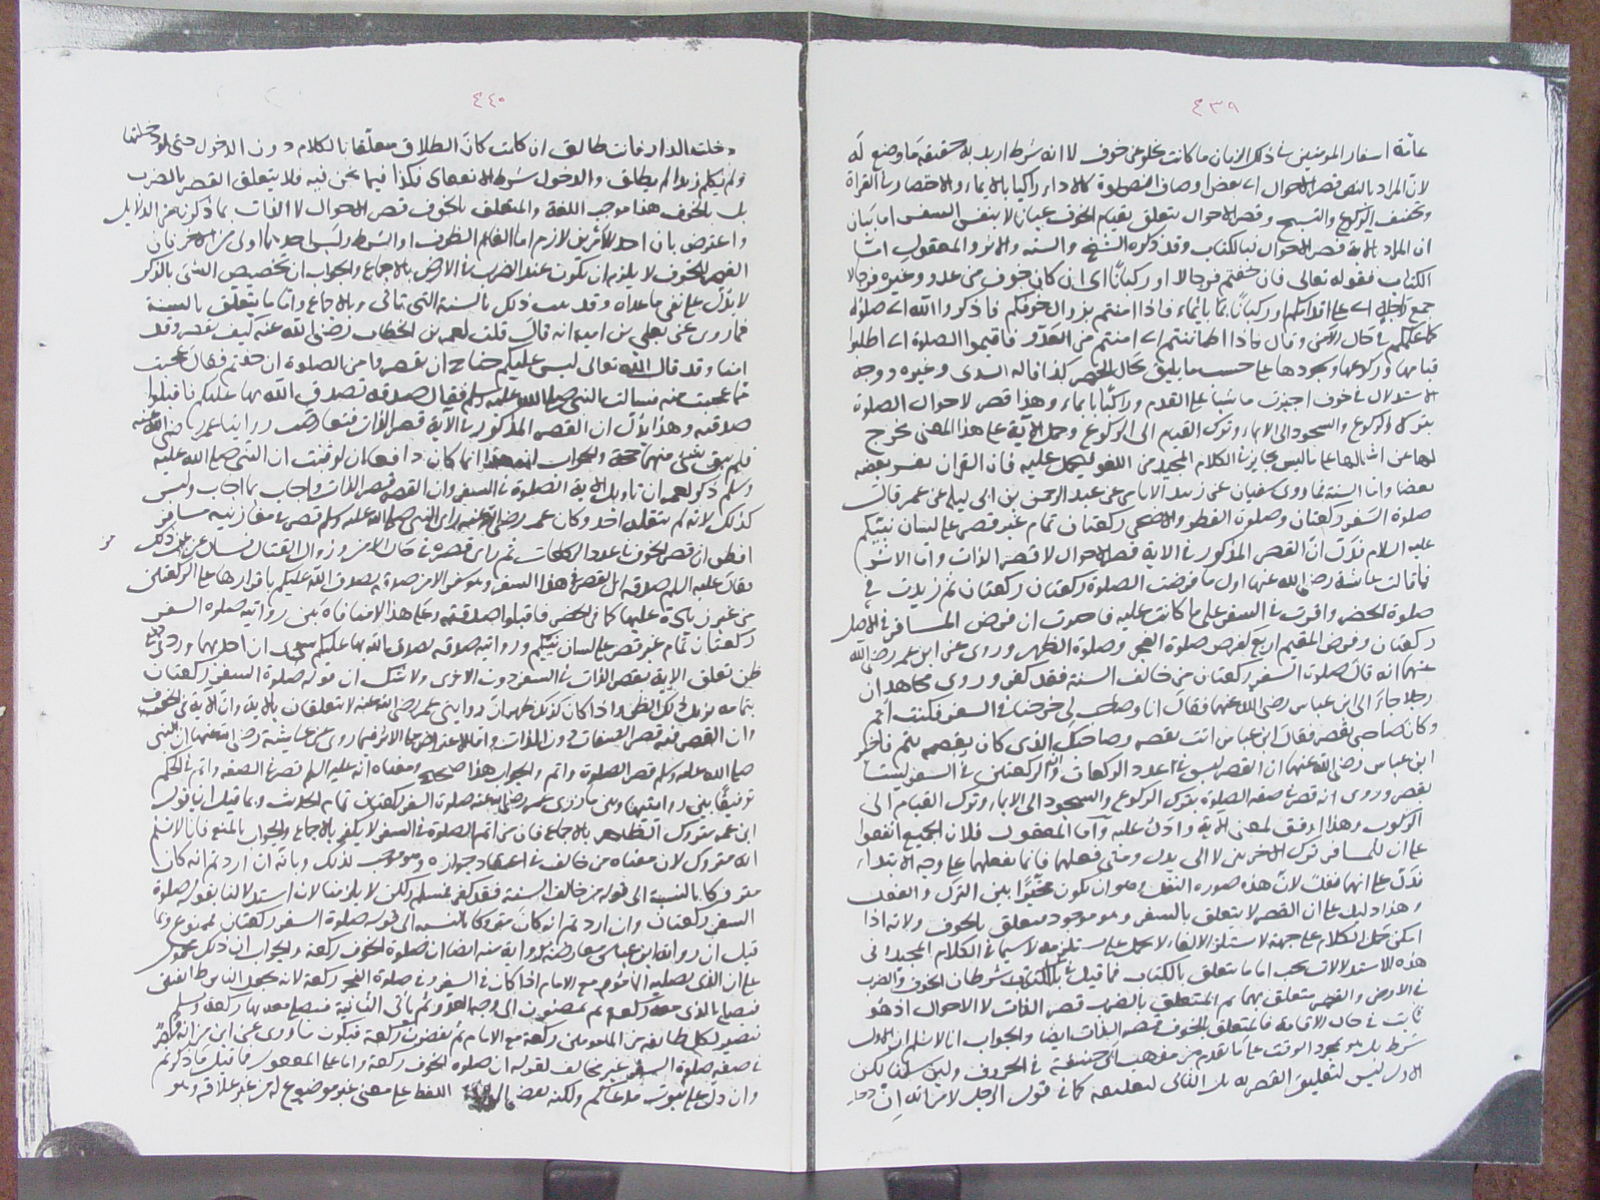 ٤٣٩
عامة اسفار المؤمنين في ذلك الزمان ما كانت تخلو عن خوف لا انه شرط اريد به حقيقة ما وضع له
لان المراد بالنص قصر الاحوال اي بعض اوصاف الصلوة كالاداء راكبا بالايماء والاختصار في القراة
وتخفيف الركوع والتسبيح وقصر الاحوال يتعلق بقيام الخوف عيانا لا بنفس السفر اما بيان
ان المراد بالاية قصر الاحوال فبالكتاب وقد ذكره الشيخ والسنة والاثر والمعقول اما
الكتاب فقوله تعالى فان خفتم فرجالا او ركبانا اي ان كان خوف من عدو وغيره فرجالا
جمع راجل اي على اقدامكم او ركبانا بايماء فاذا امنتم بزوال خوفكم فاذكروا الله اي صلوة
كما علمكم في حال الامن وقال فاذا اطماننتم اي امنتم من العدو فاقيموا الصلوة اي اطلبوا
قيامها وركوعها وسجودها على حسب ما يليق بحال الحضر كذا قاله السدي وغيره ووجه
الاستدلال في خوف اجيزت ماشيا على القدم وراكبا بايماء وهذا قصر لاحوال الصلوة
بترك الركوع والسجود الى الايماء وترك القيام الى الركوع وحمل الاية على هذا المعنى يخرج
لها عن اشتمالها على ما ليس بجايز في الكلام المجيد من اللغو فيحمل عليه فان القران يفسر بعضه
بعضا واما السنة فما روى سفيان عن زبيد الايامي عن عبد الرحمن بن ابي ليلى عن عمر قال
صلوة السفر ركعتان وصلوة الفطر والاضحى ركعتان تمام غير قصر على لسان نبيكم
عليه السلام فدل ان القصر المذكور في الاية قصر الاحوال لا قصر الذات واما الاثر
فما قالت عائشة رضي الله عنها اول ما فرضت الصلوة ركعتان ركعتان ثم زيدت في
صلوة الحضر واقرت في السفر على ما كانت عليه فاخبرت ان فرض المسافر في الاصل
ركعتان وفرض المقيم اربع كفرض صلوة الفجر وصلوة الظهر وروى عن ابن عمر رضي الله
عنهما انه قال صلوة السفر ركعتان من خالف السنة فقد كفر وروى مجاهد ان
رجلا جاء الى ابن عباس رضي الله عنهما فقال انا وصاحب لي خرجنا في السفر فكنت اتم
وكان صاحبي يقصر فقال ابن عباس انت تقصر وصاحبك الذي كان يقصر يتم فاخبر
ابن عباس رضي الله عنهما ان القصر ليس في اعداد الركعات وان الركعتين في السفر ليستا
بقصر وروى انه قصر في صفة الصلوة بترك الركوع والسجود الى الايماء وترك القيام الى
الركوب وهذا اوفق لمعنى الاية وادل عليه واما المعقول فلان الجميع اتفقوا
على ان للمسافر ترك الاخريين لا الى بدل ومتى فعلهما فانما يفعلهما على وجه الابتداء
فدل على انهما نفل لان هذه صورة النفل وهو ان يكون مخيرا بين الترك والفعل
وهذا دليل على ان القصر لا يتعلق بالسفر وهو موجود متعلق بالخوف ولانه اذا
امكن حمل الكلام على جهة لا يستلزم الالغاء لا يحمل على ما يستلزمه لا سيما في الكلام المجيد في
هذه الاستدلالات بحث اما ما يتعلق بالكتاب فما قيل في الكتاب شرطان الخوف والضرب
في الارض والقصر متعلق بهما ثم المتعلق بالضرب قصر الذات لا الاحوال اذ هو
ثابت في حال الاقامة فالمتعلق بالخوف قصر الذات ايضا والجواب انا لا نسلم ان الاول
شرط بل هو مجرد الوقت على ما تقدم من مذهب ابي حنيفة في الحروف ولئن سلمنا لكن
الاول ليس لتعليق القصر به بل الثاني لتعليقه كما في قول الرجل لامراته ان
٤٤٠
دخلت الدار فانت طالق ان كلمت كان الطلاق معلقا بالكلام دون الدخول حتى لو دخلتها
ولم تكلم زيدا لم يطلق والدخول شرط الانعقاد فكذا فيما نحن فيه فلا يتعلق القصر بالضرب
بل بالخوف هذا موجب اللغة والمتعلق بالخوف قصر الاحوال لا الذات بما ذكرنا من الدلايل
واعترض بان احد الامرين لازم اما الغاء الظرف او الشرط وليس احدهما اولى من الاخر فان
القصر للخوف لا يلزم ان يكون عند الضرب في الارض بالاجماع والجواب ان تخصيص الشئ بالذكر
لا يدل على نفي ما عداه وقد ثبت ذلك بالسنة التي تاتي وبالاجماع واما ما يتعلق بالسنة
فما روى عن يعلى بن امية انه قال قلت لعمر بن الخطاب رضي الله عنه كيف نقصر وقد
امنا وقد قال الله تعالى ليس عليكم جناح ان تقصروا من الصلوة ان خفتم فقال عجبت
مما عجبت منه فسالت النبي صلى الله عليه وسلم فقال صدقة تصدق الله بها عليكم فاقبلوا
صدقته وهذا يدل ان القصر المذكور في الاية قصر الذات فتعارضت روايتا عمر رضي الله عنه
فلم يبق شئ منهما حجة والجواب انما كان دافعا ان لو ثبت ان النبي صلى الله عليه
وسلم ذكر لعمر ان تاويل الاية الصلوة في السفر وان القصر قصر الذات واجاب بما اجاب وليس
كذلك لانه لم ينقله احد وكان عمر رضي الله عنه راى النبي صلى الله عليه وسلم قصر في مغازيه مسافر
افظن ان قصر الخوف في عدد الركعات ثم راى قصره في حال الامن وزوال القتال فسال عن ذلك
فقال عليه السلام صدقة اي القصر في هذا السفر وهو سفر الامن صدقة تصدق الله عليكم باقرارها على الركعتين
من غير زيادة عليها كما في الحضر فاقبلوا صدقته وعلى هذا لا منافاة بين روايته صلوة السفر
ركعتان تمام غير قصر على لسان نبيكم وروايته صدقة تصدق الله بها عليكم
ظن تعلق الاية بقصر الذات في السفر دون الاخرى ولا شك ان قوله صلوة السفر ركعتان
بتمامه يزيل ذلك الظن واذا كان كذلك ظهر ان روايتي عمر رضي الله عنه لا يتعلقان بالاية وان الاية في الخوف
وان القصر فيه قصر الصفات دون الذات واما الاعتراض على الاثر فما روى عن عايشة رضي الله عنها ان النبي
صلى الله عليه وسلم قصر الصلوة واتم والجواب هذا صحيح ومعناه انه عليه السلام قصر في الصفة واتم في الحكم
توفيقا بين روايتها وبين ما روى عمر رضي الله عنه صلوة السفر ركعتان تمام الحديث وبما قيل ان قول
ابن عمر متروك الظاهر بالاجماع فان من اتم الصلوة في السفر لا يكفر بالاجماع والجواب بالمنع فانا لا نسلم
انه متروك لان معناه من خالف في اعتقاد جوازه وهو موجب لذلك وبانه ان اردتم انه كان
متروكا بالنسبة الى قوله من خالف السنة فقد كفر فمسلم ولكن لا يلزمنا لان استدلالنا بقوله صلوة
السفر ركعتان وان اردتم انه كان متروكا بالنسبة الى قوله صلوة السفر ركعتان فممنوع وبما
قيل ان رواية ابن عباس معارضة برواية منه ايضا ان صلوة الخوف ركعة والجواب ان ذلك محمول
على ان الذي يصليه الماموم مع الامام اذا كان في السفر وفي صلوة الفجر ركعة لانه يجعل الناس طائفتين
فيصلي بالذي معه ركعة ثم يمضون الى وجه العدو ثم ياتي الثانية فيصلي معه بها ركعة ويسلم
فيصير لكل طائفة من المامومين ركعة مع الامام ثم يقضون ركعة فيكون ما روى عن ابن عباس
في صفة صلوة السفر غير مخالف لقوله ان صلوة الخوف ركعة واما على المعقول فما قيل ما ذكرتم
وان دل على ثبوت مدعاكم ولكنه يعضد اللفظ على معنى غير موضوع له من غير علاقة وهو